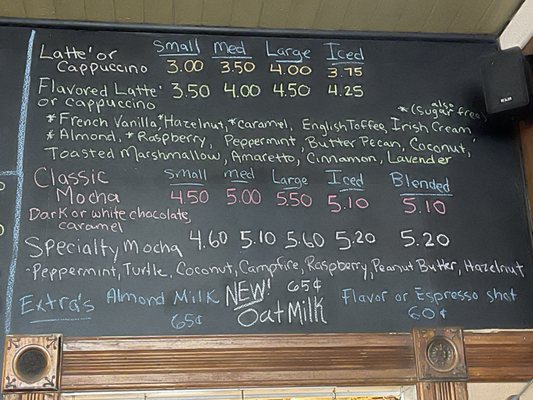 Latte' or Small Med Large Iced
Cappuccino 3.00 3.50 4.00 3.75
Flavored Latte' 3.50 4.00 4.50 4.25
or cappuccino
*(also Sugar free)
*French Vanilla, *Hazelnut, *caramel, English Toffee, Irish Cream
*Almond, *Raspberry, Peppermint, Butter Pecan, Coconut,
Toasted Marshmallow, Amaretto, Cinnamon, Lavender
Classic Small Med Large Iced Blended
Mocha 4.50 5.00 5.50 5.10 5.10
Dark or white chocolate,
caramel
Specialty Mocha 4.60 5.10 5.60 5.20 5.20
-Peppermint, Turtle, Coconut, Campfire, Raspberry, Peanut Butter, Hazelnut
Extra's Almond Milk NEW! 65¢ Flavor or Espresso shot
65¢ Oat Milk 60¢